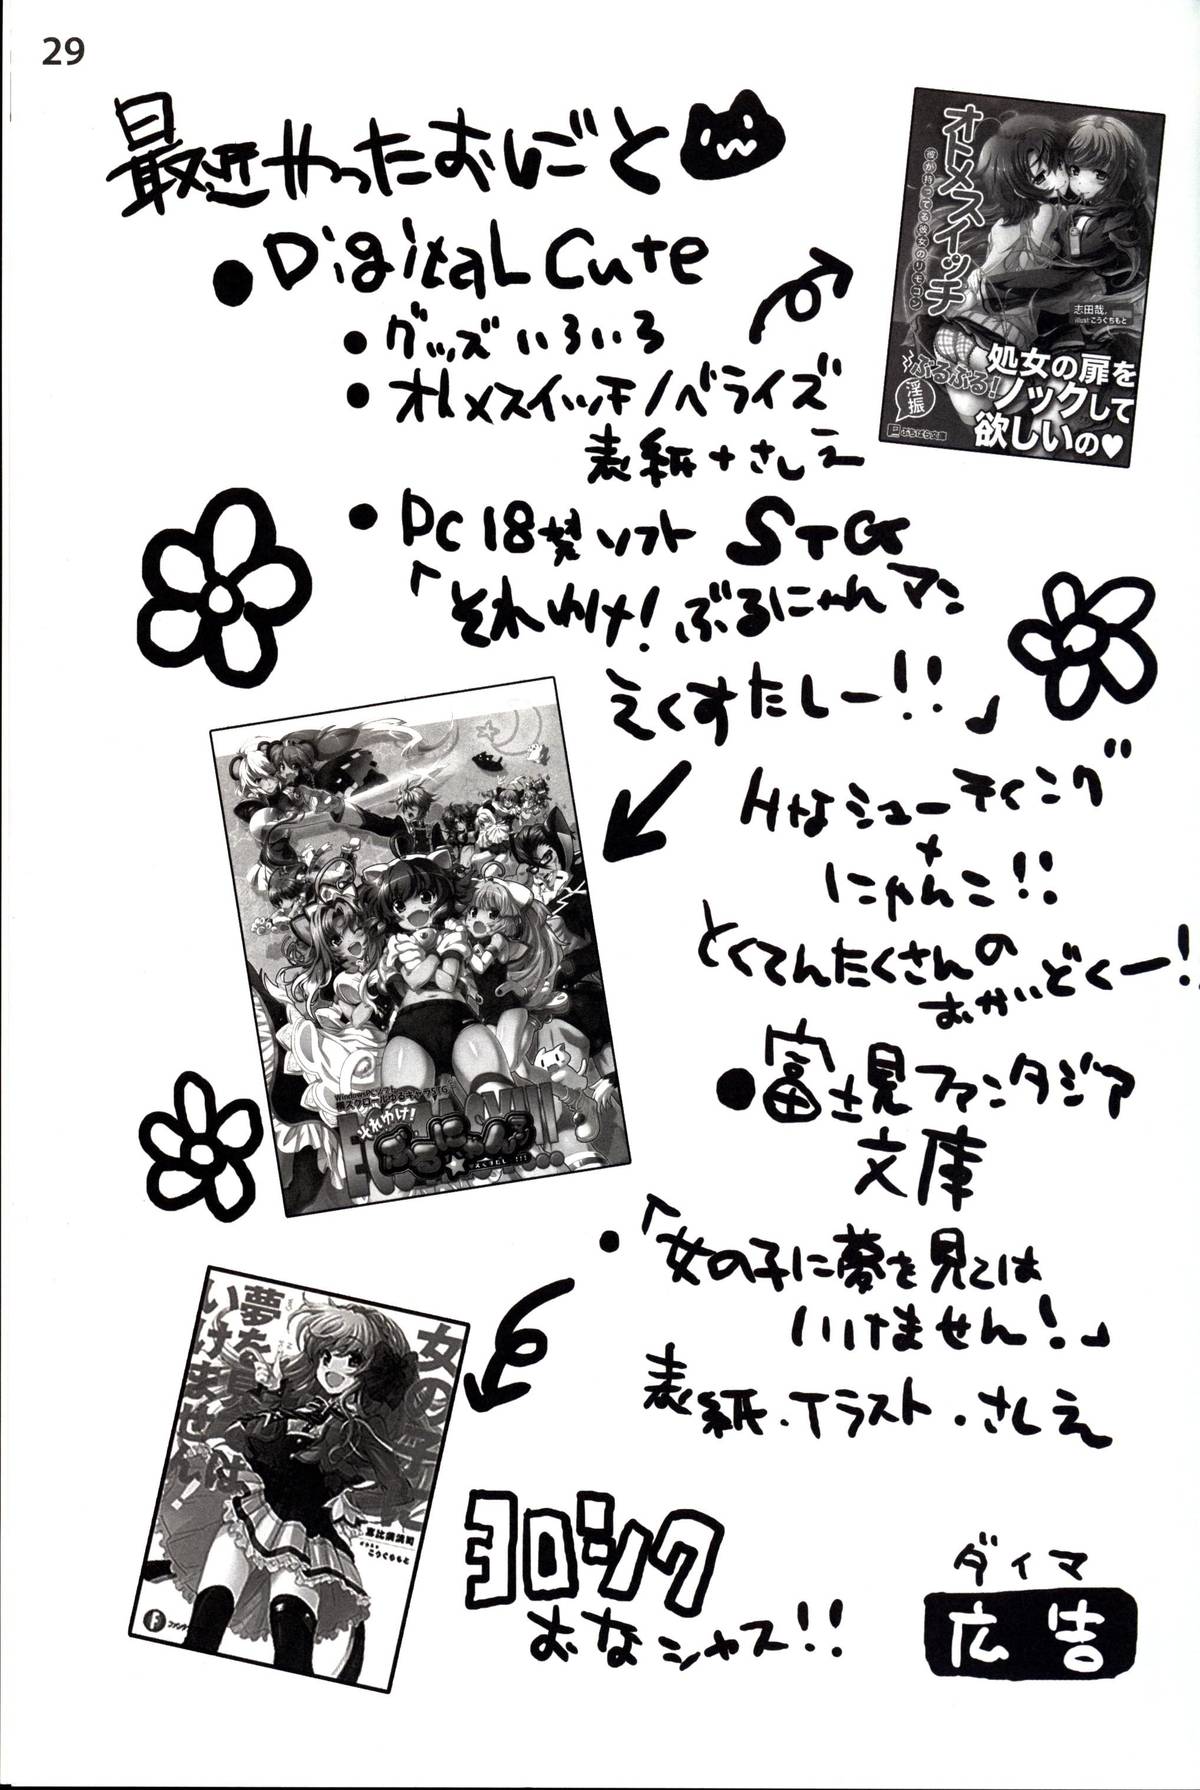 29
最近やったおしごと
・Digital Cute
・グッズいろいろ
・オトメスイッチノベライズ
表紙+さしえ
・PC 18禁ソフト STG
「それゆけ!ぶるにゃんマン
えくすたしー!!」
Hなシューティング
+
にゃんこ!!
とくてんたくさんの
おかいどくー!
・富士見ファンタジア
文庫
・「女の子に夢を見ては
いけません!」
表紙・イラスト・さしえ
ヨロシク
おなシャス!!
ダイマ
広告
オトメスイッチ
彼が持ってる彼女のリモコン
志田哉,
illust:こうぐちもと
ぶるぶる!
淫振
処女の扉を
ノックして
欲しいの♥
ぷちぱら文庫
WindowsPCソフト
横スクロールゆるキャラSTG
それゆけ!
ぶるにゃんマン
えくすたしー!!!
女の子に
夢を見ては
いけません!
恵比須清司
イラスト
こうぐちもと